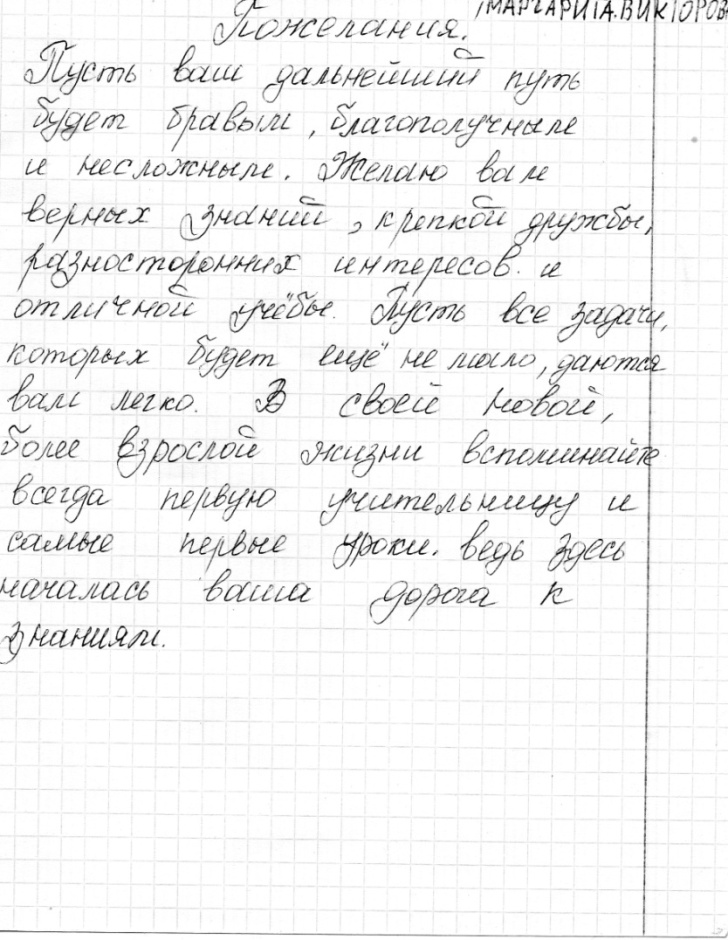 МАРГАРИТА.ВИКТОРОВ
Пожелания.
Пусть ваш дальнейший путь
будет бравым, благополучным
и несложным. Желаю вам
верных знаний, крепкой дружбы,
разносторонних интересов. и
отличной учёбы. Пусть все задачи,
которых будет ещё не мало, даются
вам легко. В своей новой,
более взрослой жизни вспоминайте
всегда первую учительницу и
самые первые уроки. ведь здесь
началась ваша дорога к
знаниям.